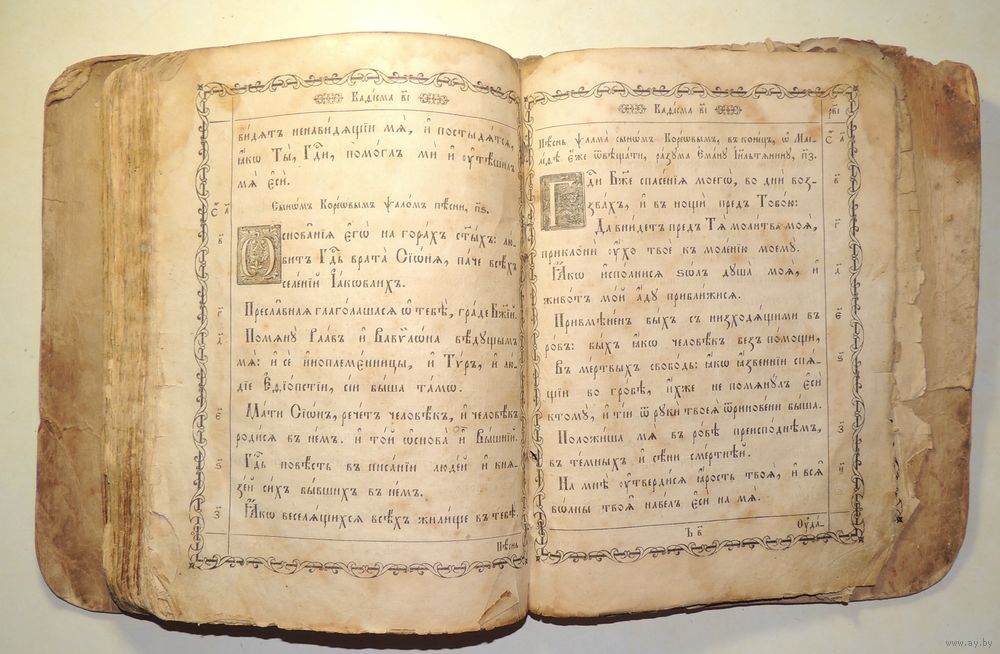 Каѳі́сма в҃і
ви́дятъ ненави́дящіи мѧ̀, и҆ постыдѧ́тсѧ,
ꙗ҆́кѡ Ты̀, Гдⷭ҇и, помо́глъ мѝ и҆ ᲂу҆тѣ́шилъ
мѧ̀ є҆сѝ.
Сынѡ́мъ Коре́ѡвымъ ѱало́мъ пѣ́сни, п҃ѕ.
Ѻ҆снова̑нїѧ є҆гѡ̀ на гора́хъ ст҃ы́хъ: лю́-
битъ Гдⷭ҇ь врата̀ Сїѡ̑нѧ, па́че всѣ́хъ
селе́нїй І҆а́кѡвлихъ.
Пресла̑внаѧ глаго́лашасѧ ѡ҆ тебѣ̀, гра́де Бж҃їй.
Помѧнꙋ̀ Раа́въ и҆ Вавѷлѡ́на вѣ́дꙋщымъ
мѧ̀: и҆ сѐ и҆ноплеме́нницы, и҆ Тѵ́ръ, и҆ лю́-
дїе Е҆ѳїо́пстїи, сі́и бы́ша та́мѡ.
Ма́ти Сїѡ́нъ, рече́тъ человѣ́къ, и҆ человѣ́къ
роди́сѧ въ не́мъ. и҆ то́й ѡ҆снова̀ и҆̀ Вы́шнїй.
Гдⷭ҇ь повѣ́сть въ писа́нїи люде́й и҆ кнѧ-
зе́й си́хъ бы́вшихъ въ не́мъ.
Ꙗ҆́кѡ веселѧ́щихсѧ всѣ́хъ жили́ще въ тебѣ̀.
Пѣ́снь
С҃ л҃
в҃
г҃
д҃
є҃
ѕ҃
з҃
Каѳі́сма в҃і
Пѣ́снь ѱалма̀ сынѡ́мъ Коре́ѡвымъ, въ коне́цъ, ѡ҆ Мае-
ле́ѳѣ є҆́же ѿвѣща́ти, ра́зꙋма Е҆ма́нꙋ І҆и҃льтѧ́нинꙋ, п҃з.
Гдⷭ҇и Бж҃е спасе́нїѧ моегѡ̀, во днѝ воз-
зва́хъ, и҆ въ нощѝ пред̾ Тобо́ю:
Да вни́детъ пред̾ Тѧ̀ моли́тва моѧ̀,
приклонѝ ᲂу҆́хо твоѐ къ моле́нїю моемꙋ̀.
Ꙗ҆́кѡ и҆спо́лнисѧ ѕѡ́лъ дꙋша̀ моѧ̀, и҆
живо́тъ мо́й а҆́дꙋ прибли́жисѧ.
Привмѣне́нъ бы́хъ съ низходѧ́щими въ
ро́въ: бы́хъ ꙗ҆́кѡ человѣ́къ без̾ по́мощи,
Въ ме́ртвыхъ свобо́дь: ꙗ҆́кѡ ꙗ҆́звеннїи спѧ́-
щїи во гро́бѣ, и҆́хже не помѧнꙋ́лъ є҆сѝ
ктомꙋ̀, и҆ ті́и ѿ рꙋкѝ твоеѧ̀ ѿринове́ни бы́ша.
Положи́ша мѧ̀ въ ро́вѣ преиспо́днѣмъ,
въ те́мныхъ и҆ сѣ́ни сме́ртнѣй.
На мнѣ̀ ᲂу҆тверди́сѧ ꙗ҆́рость твоѧ̀, и҆ всѧ̑
вѡ́лны твоѧ̑ наве́лъ є҆сѝ на мѧ̀.
Ъ в҃
Оу҆да-
рв҃і
С҃ л҃
в҃
г҃
д҃
є҃
ѕ҃
з҃
и҃
www.ay.by